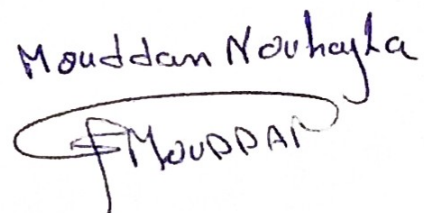 Mouddan Nouhayla
MOUDDAN